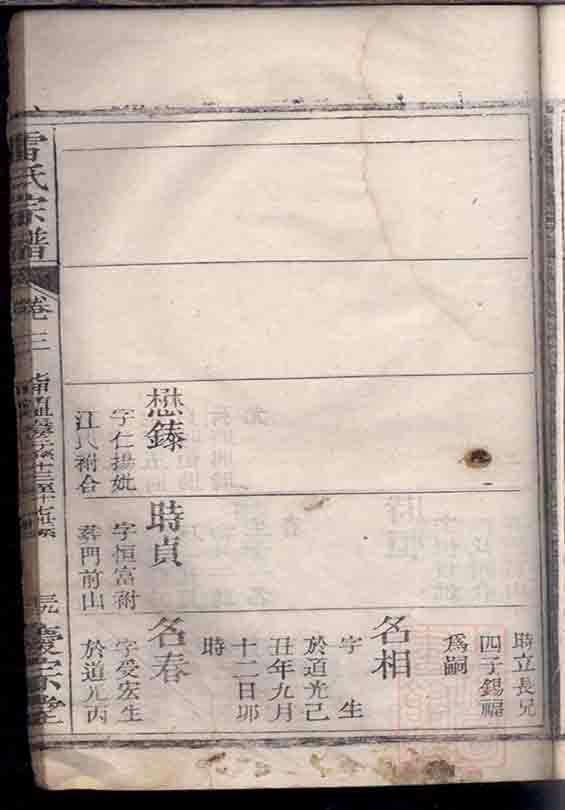 時立長兄
四子錫福
爲嗣
名相
字 生
於道光己
丑年九月
十二日卯
時
名春
字受宏生
於道光丙
時貞
字恒富祔
葬門前山
懋鏲
字仁揚妣
江氏祔合
雷氏宗譜
卷三
慶宗堂